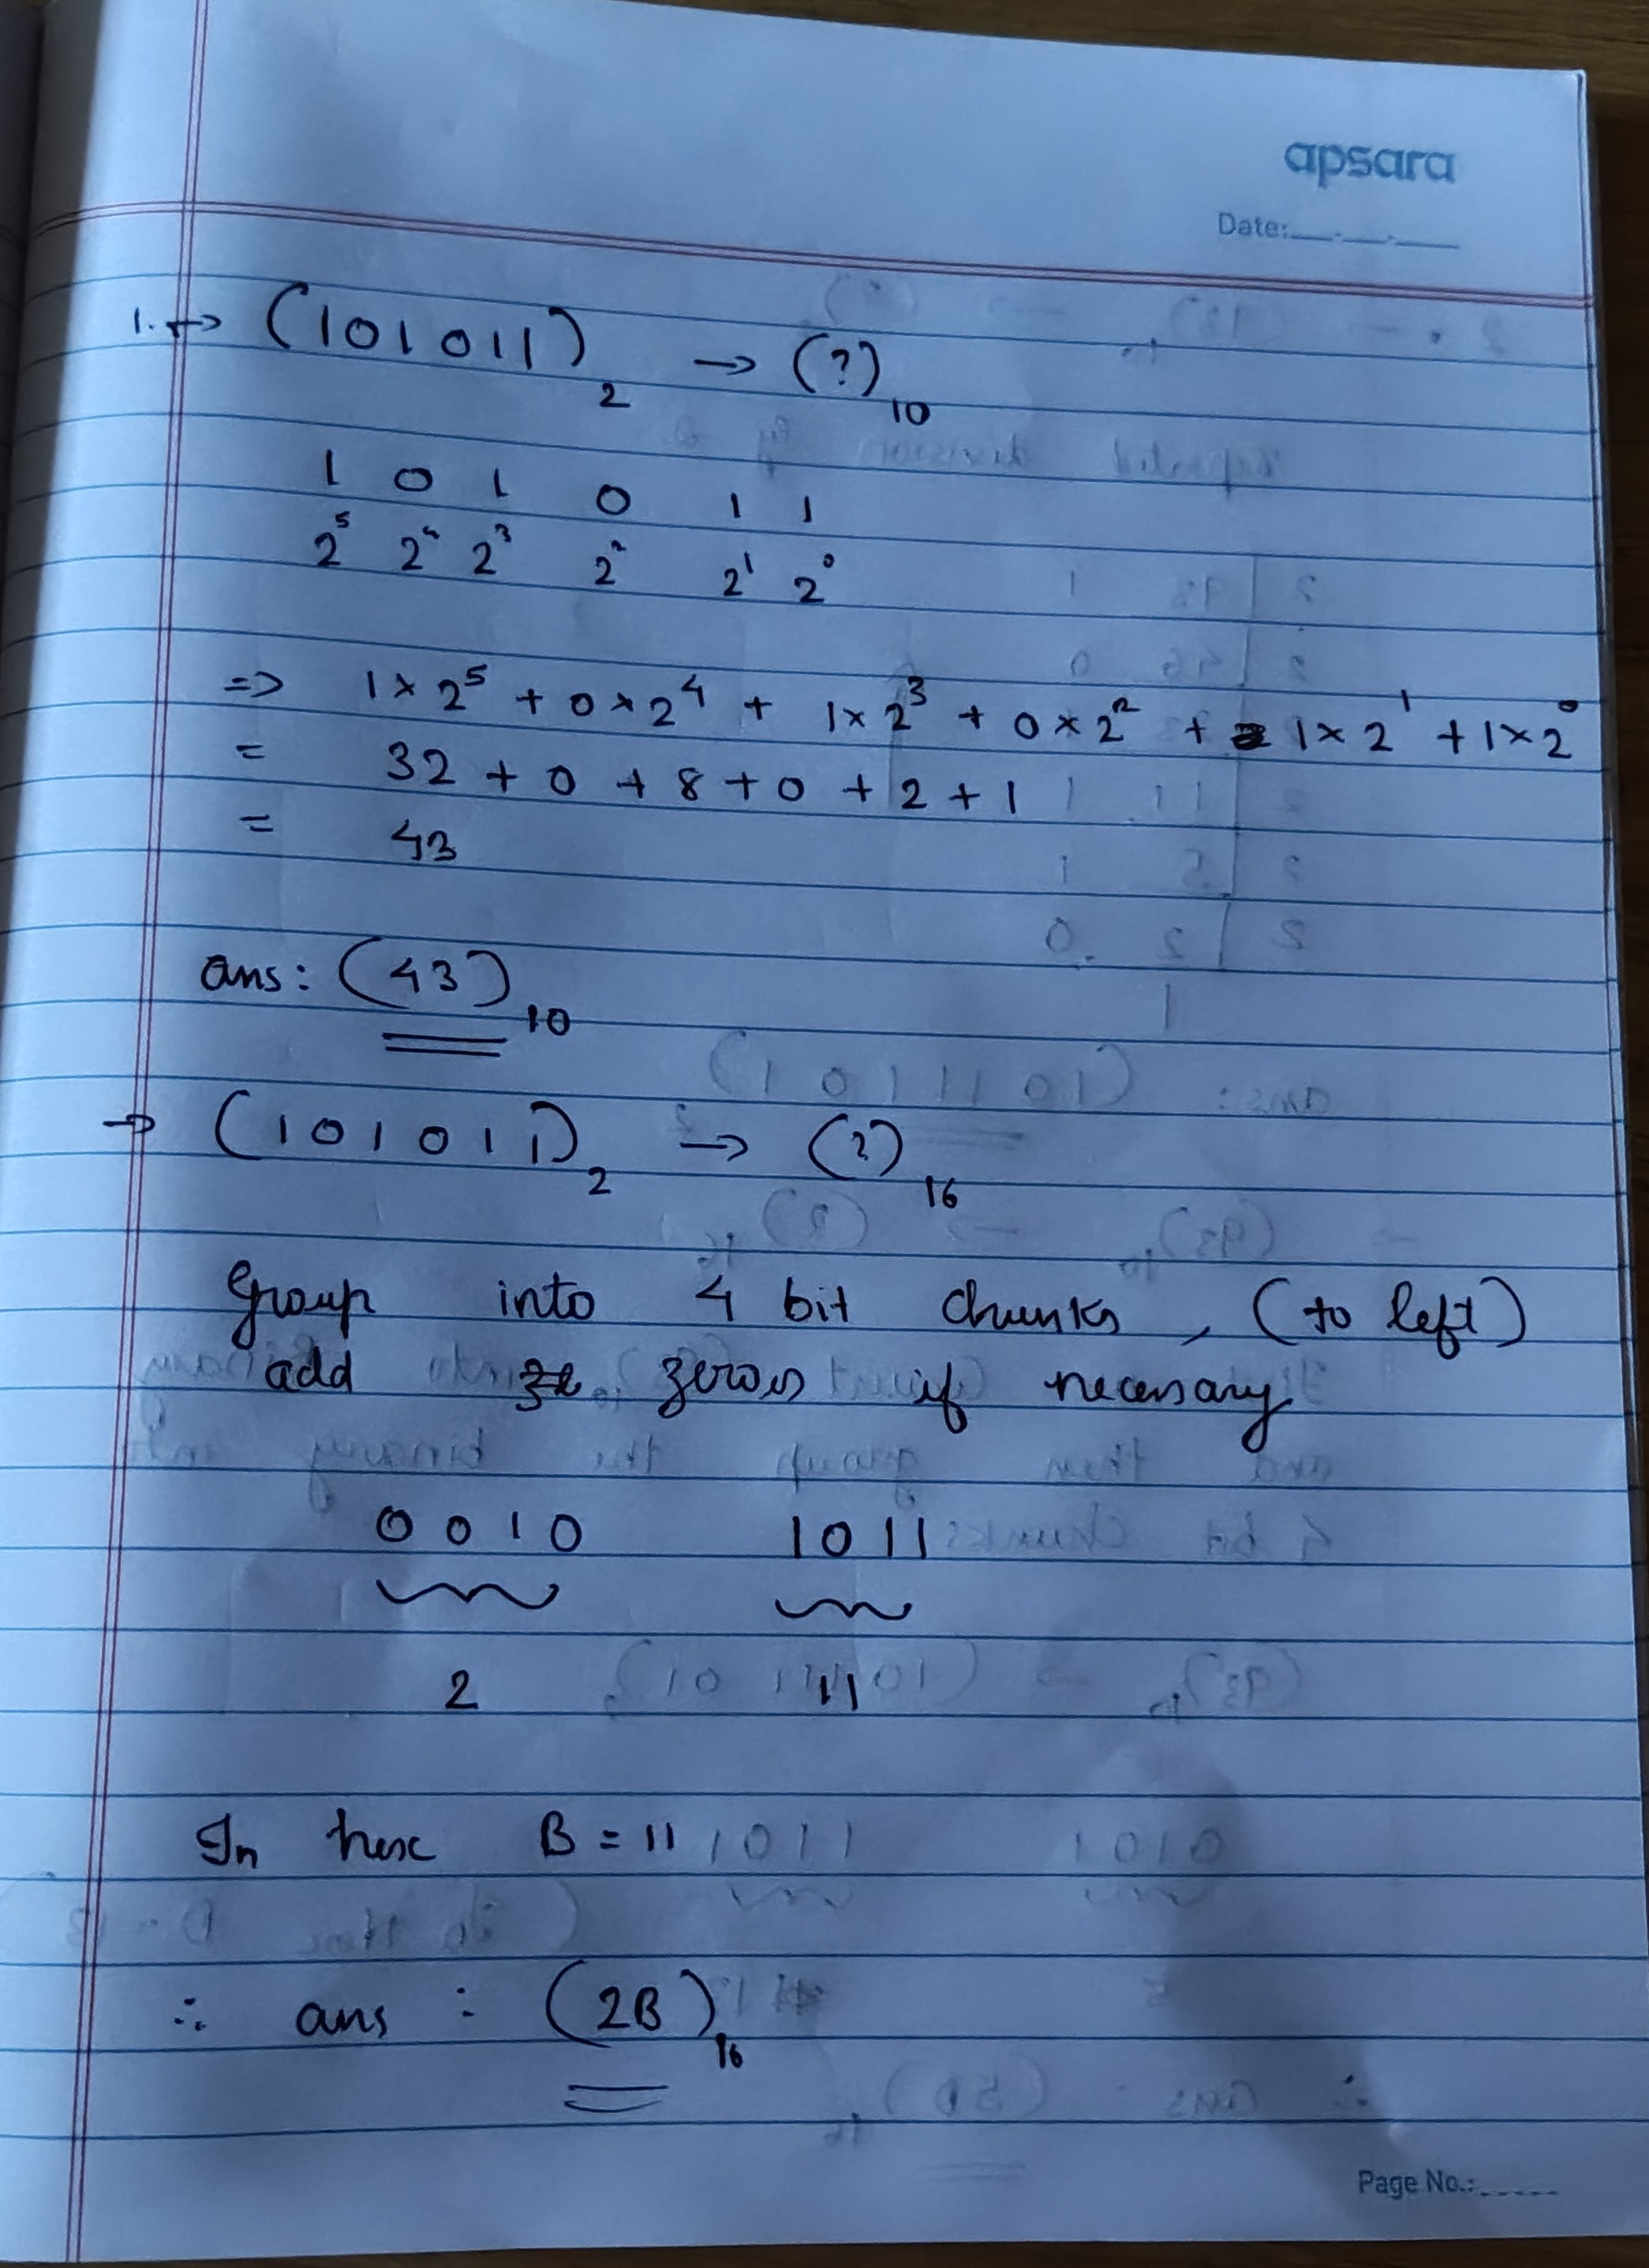 apsara
Date:
1. → (101011)₂ → (?)₁₀
1 0 1 0 1 1
2⁵ 2⁴ 2³ 2² 2¹ 2⁰
=> 1 × 2⁵ + 0 × 2⁴ + 1 × 2³ + 0 × 2² + 1 × 2¹ + 1 × 2⁰
= 32 + 0 + 8 + 0 + 2 + 1
= 43
ans: (43)₁₀
→ (101011)₂ → (?)₁₆
Group into 4 bit chunks, (to left)
add zeroes if necessary
0010 1011
2 11
In hex B = 11
∴ ans : (2B)₁₆
Page No.: